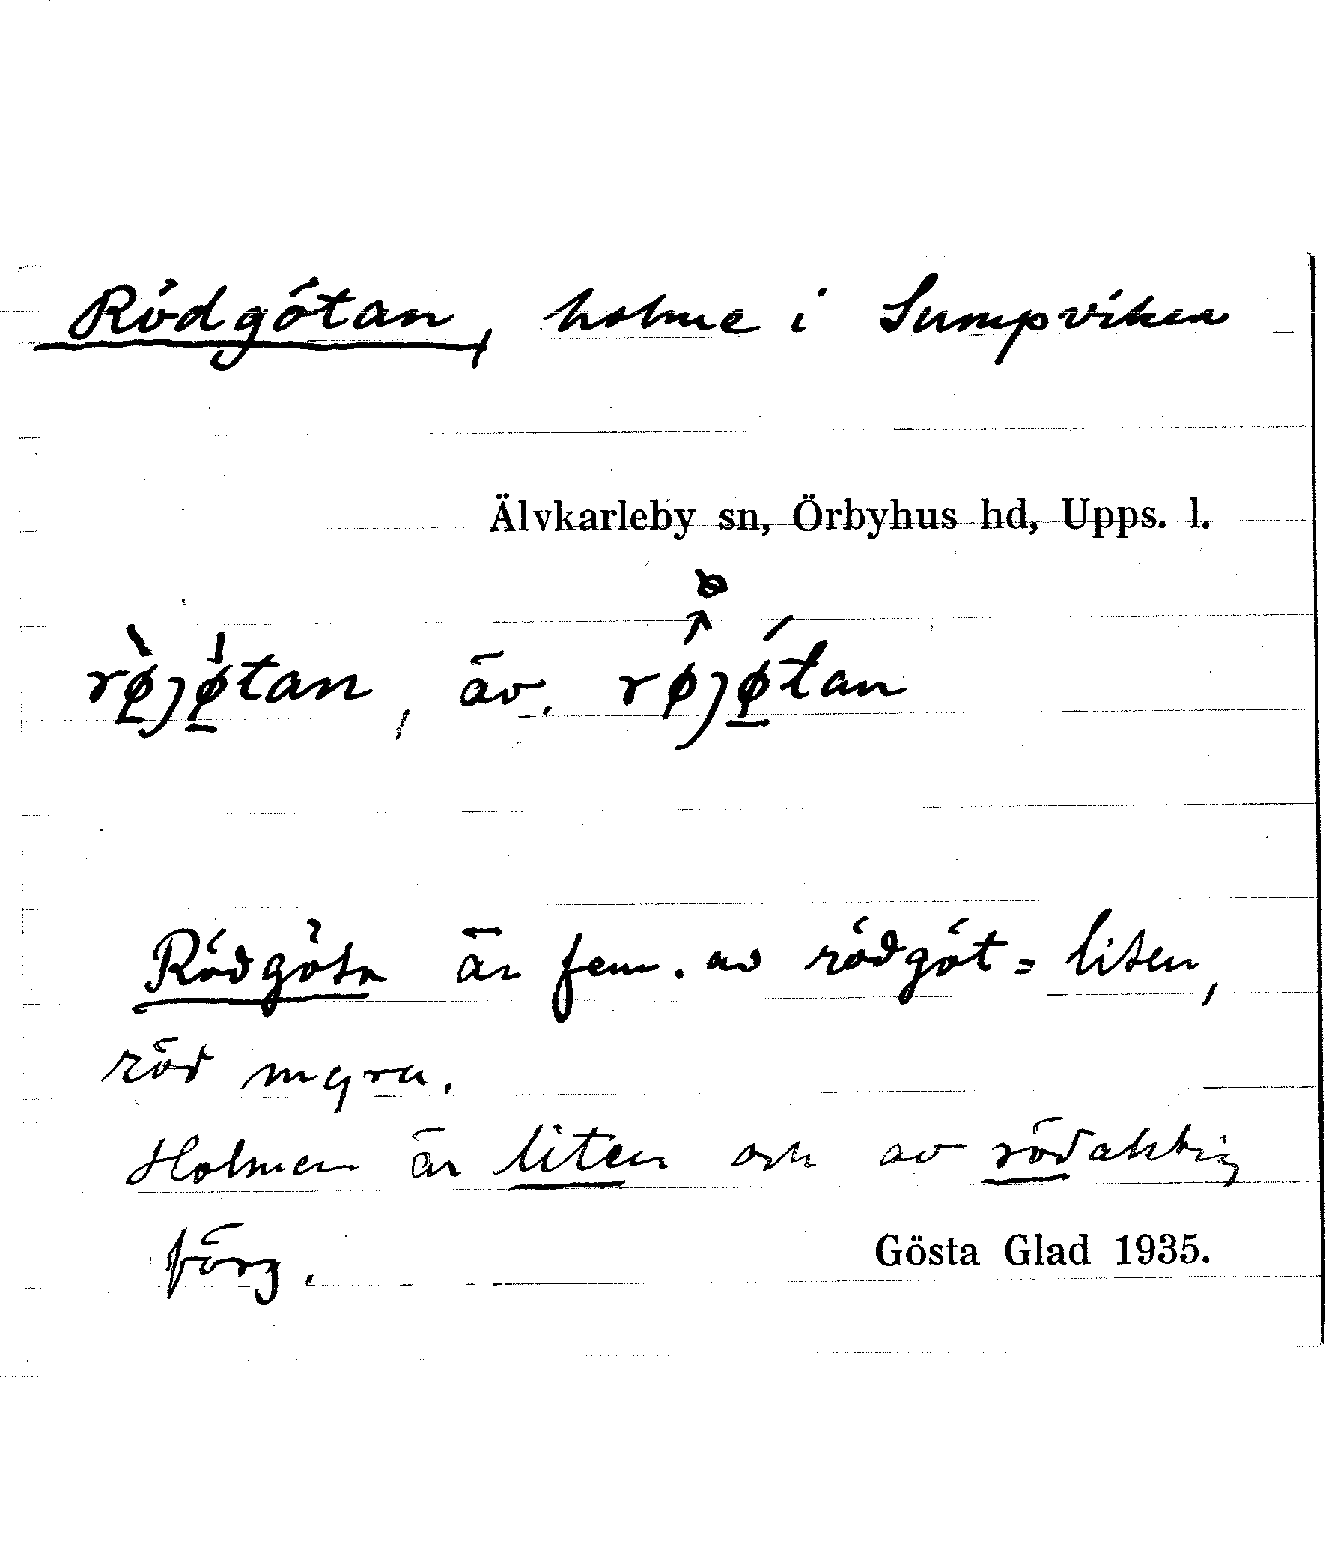 Rödgötan, holme i Sumpviken
Älvkarleby sn, Örbyhus hd, Upps. l.
rø̀jø̀tan, äv. røjǿtan
Rödgöta är fem. av rödgöt = liten,
röd myra.
Holmen är liten och av rödaktig
färg.
Gösta Glad 1935.